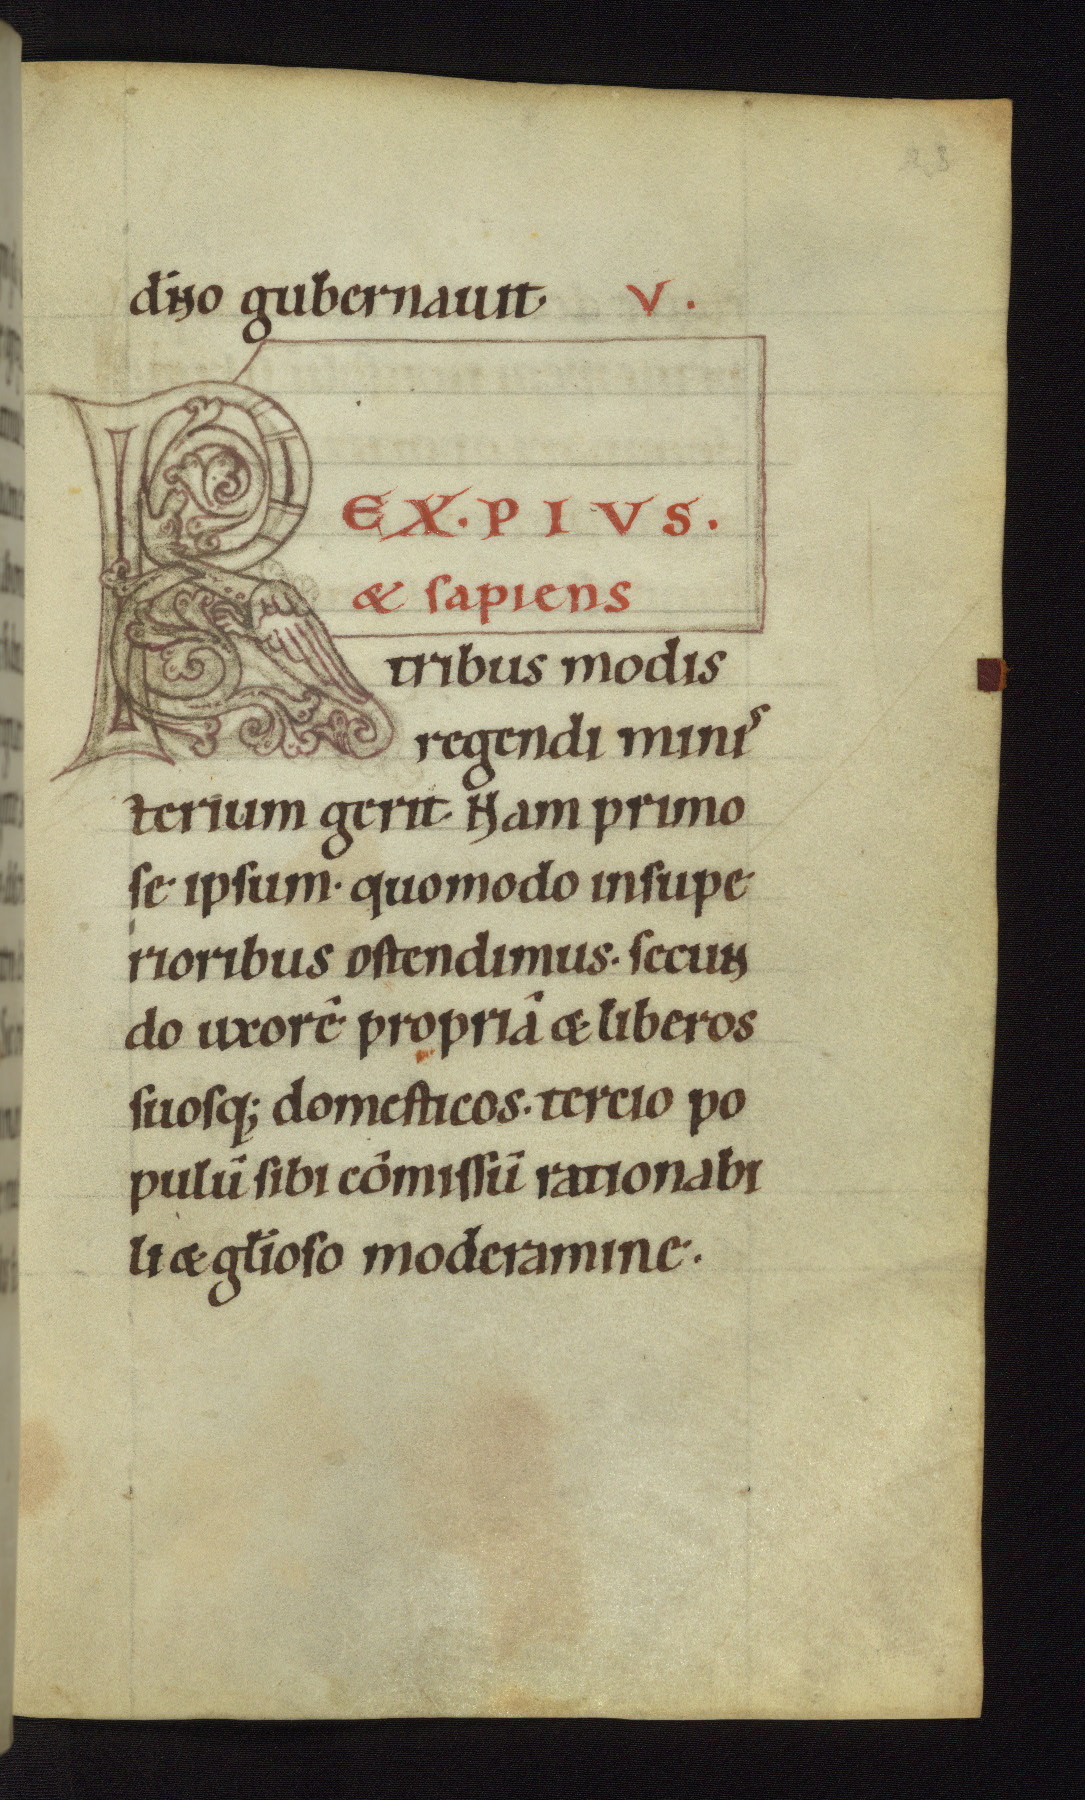 dñno gubernauit· V.
REX·PIVS.
& sapiens
tribus modis
regendi minis
terium gerit· Nam primo
se ipsum· quomodo in supe
rioribus ostendimus· secun
do uxorē propriā & liberos
suosq; domesticos· tercio po
pulū sibi cōmissū rationabi
li & gl̄ioso moderamine·